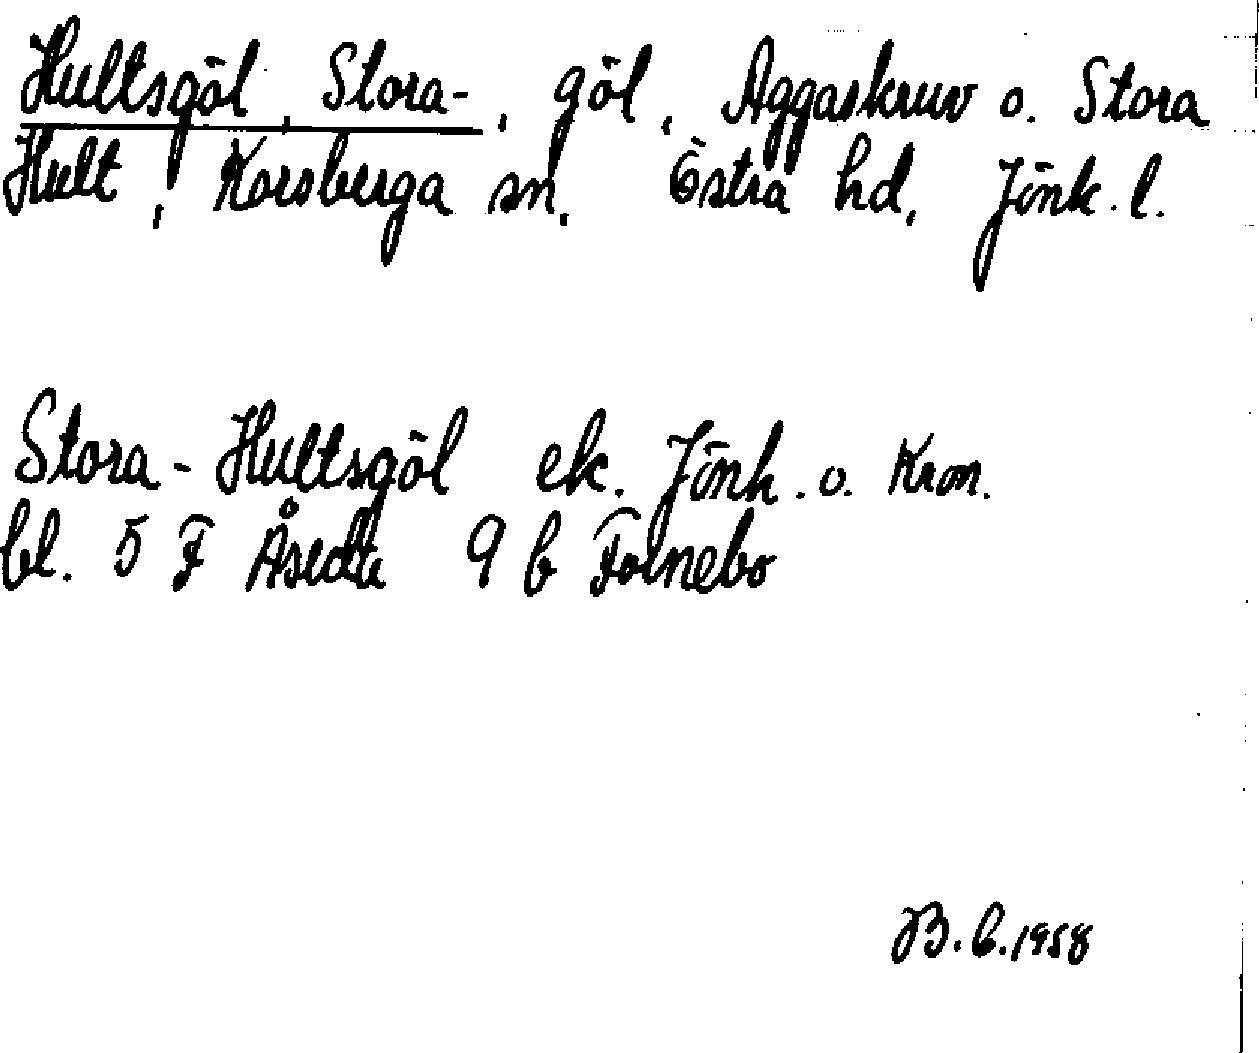 Hultsgöl, Stora-, göl, Aggaskruv o. Stora
Hult, Korsberga sn, Östra hd, Jönk. l.
Stora-Hultsgöl ek. Jönk. o. Kron.
bl. 5 F Åseda 9 b Folnebo
B.C. 1958